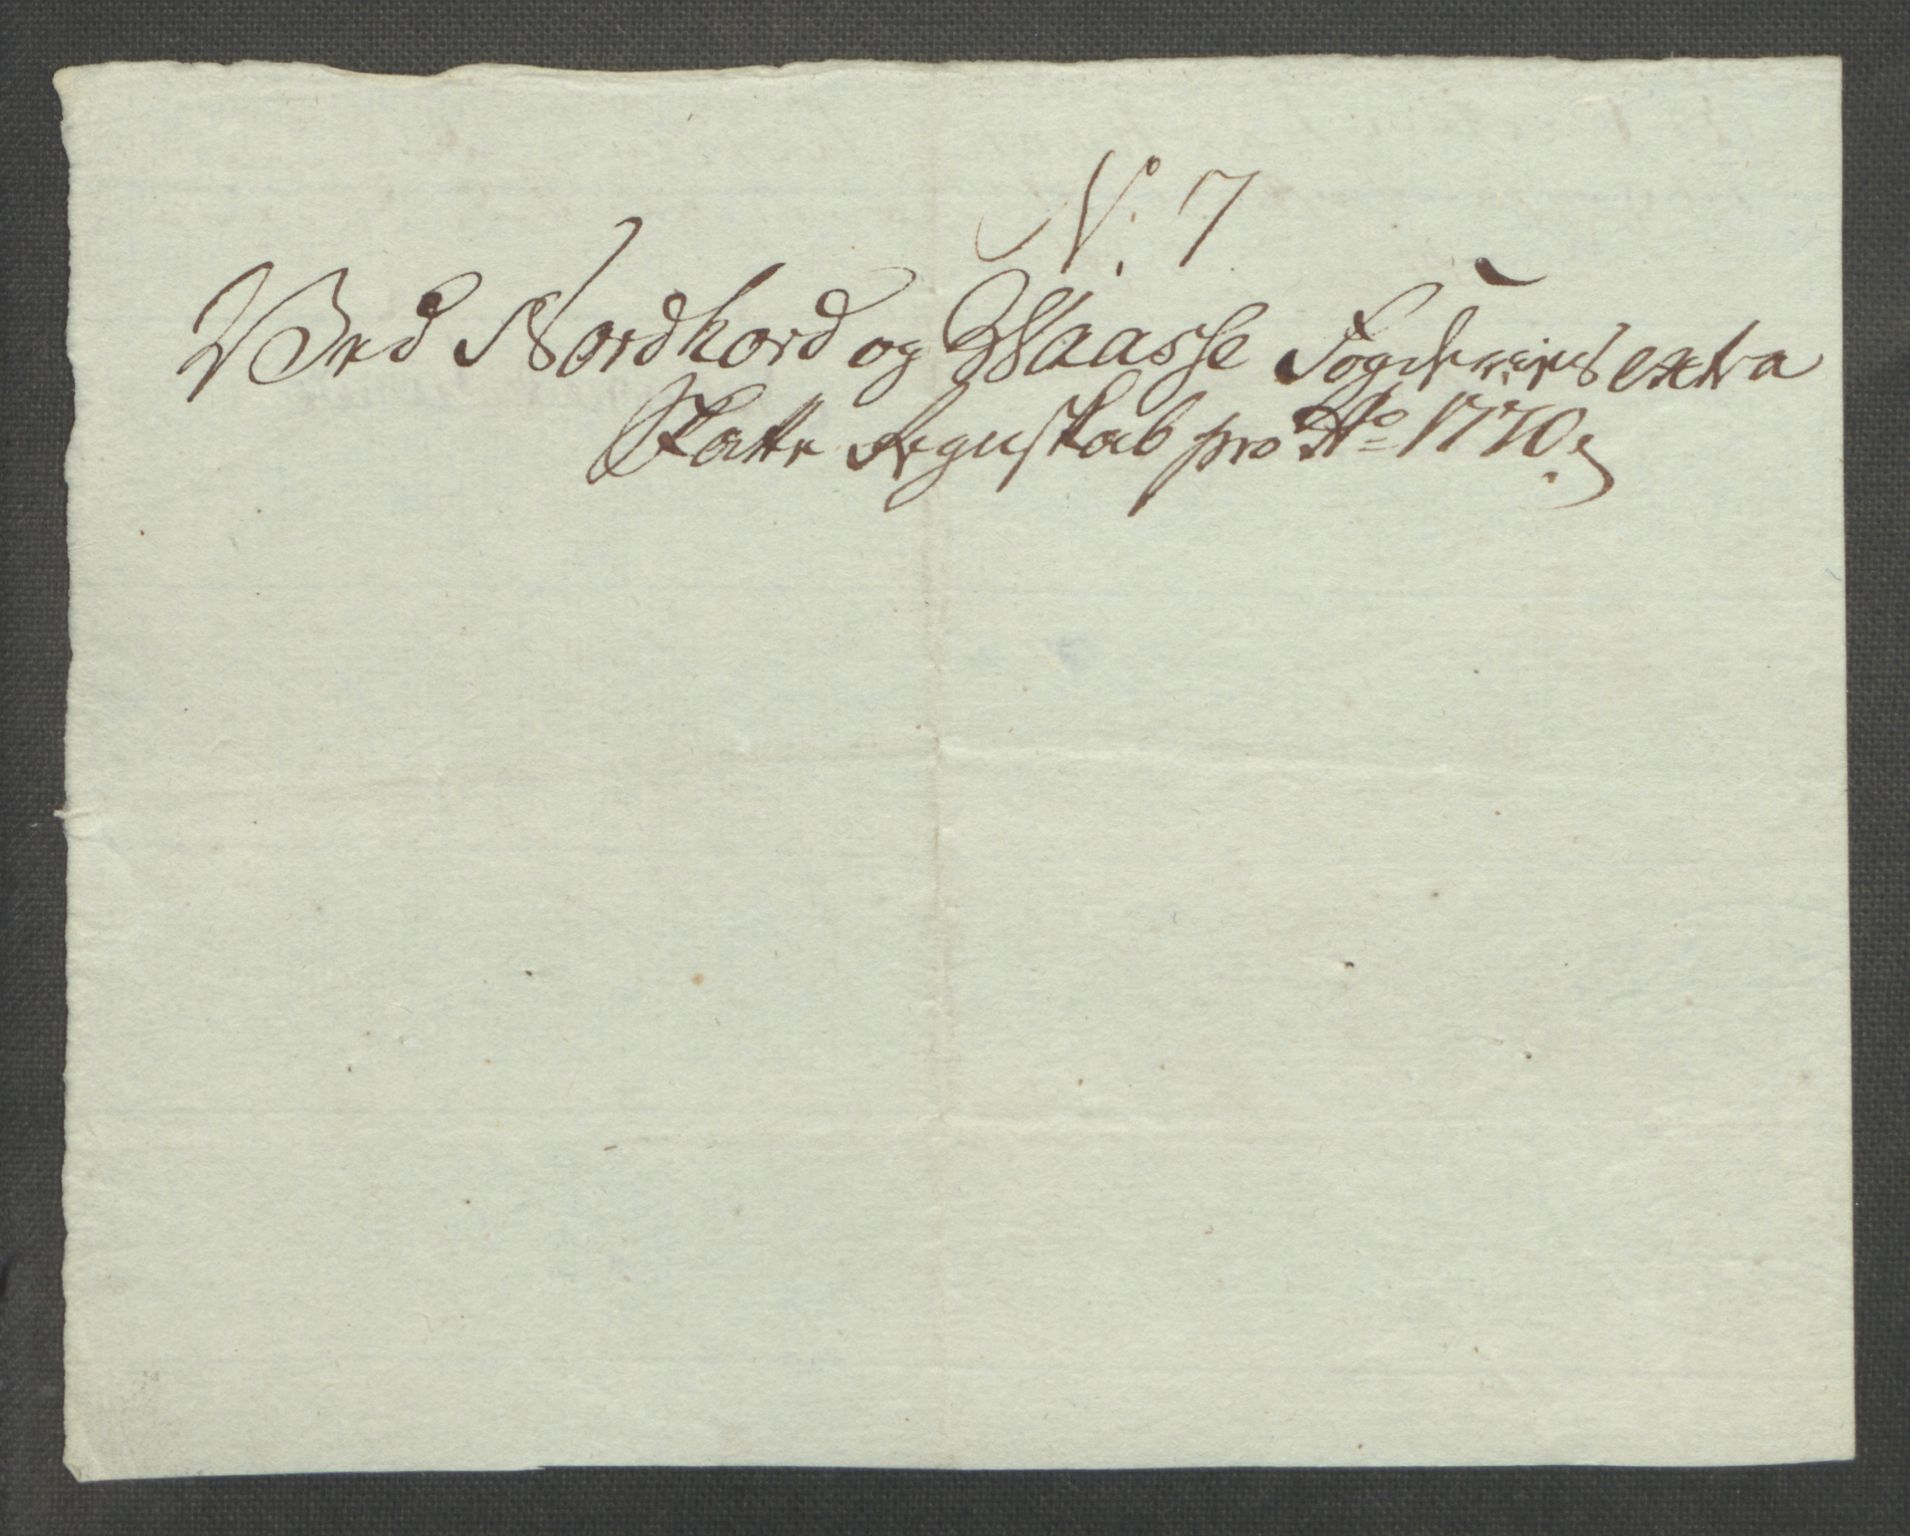 N: 7
Ved Nordhord og Waasse Fogderies extra
Skatte Regnskab pro Ao 1770.